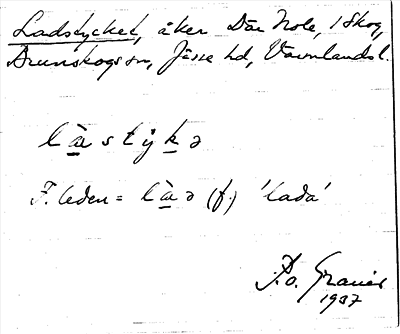 Ladstycket, åker Där Nole, i Skog,
Brunskogs sn, Jösse hd, Värmlands l.
l à s t y k ə
F. leden = l à ə (f.) 'lada'
P.o. Granér
1937